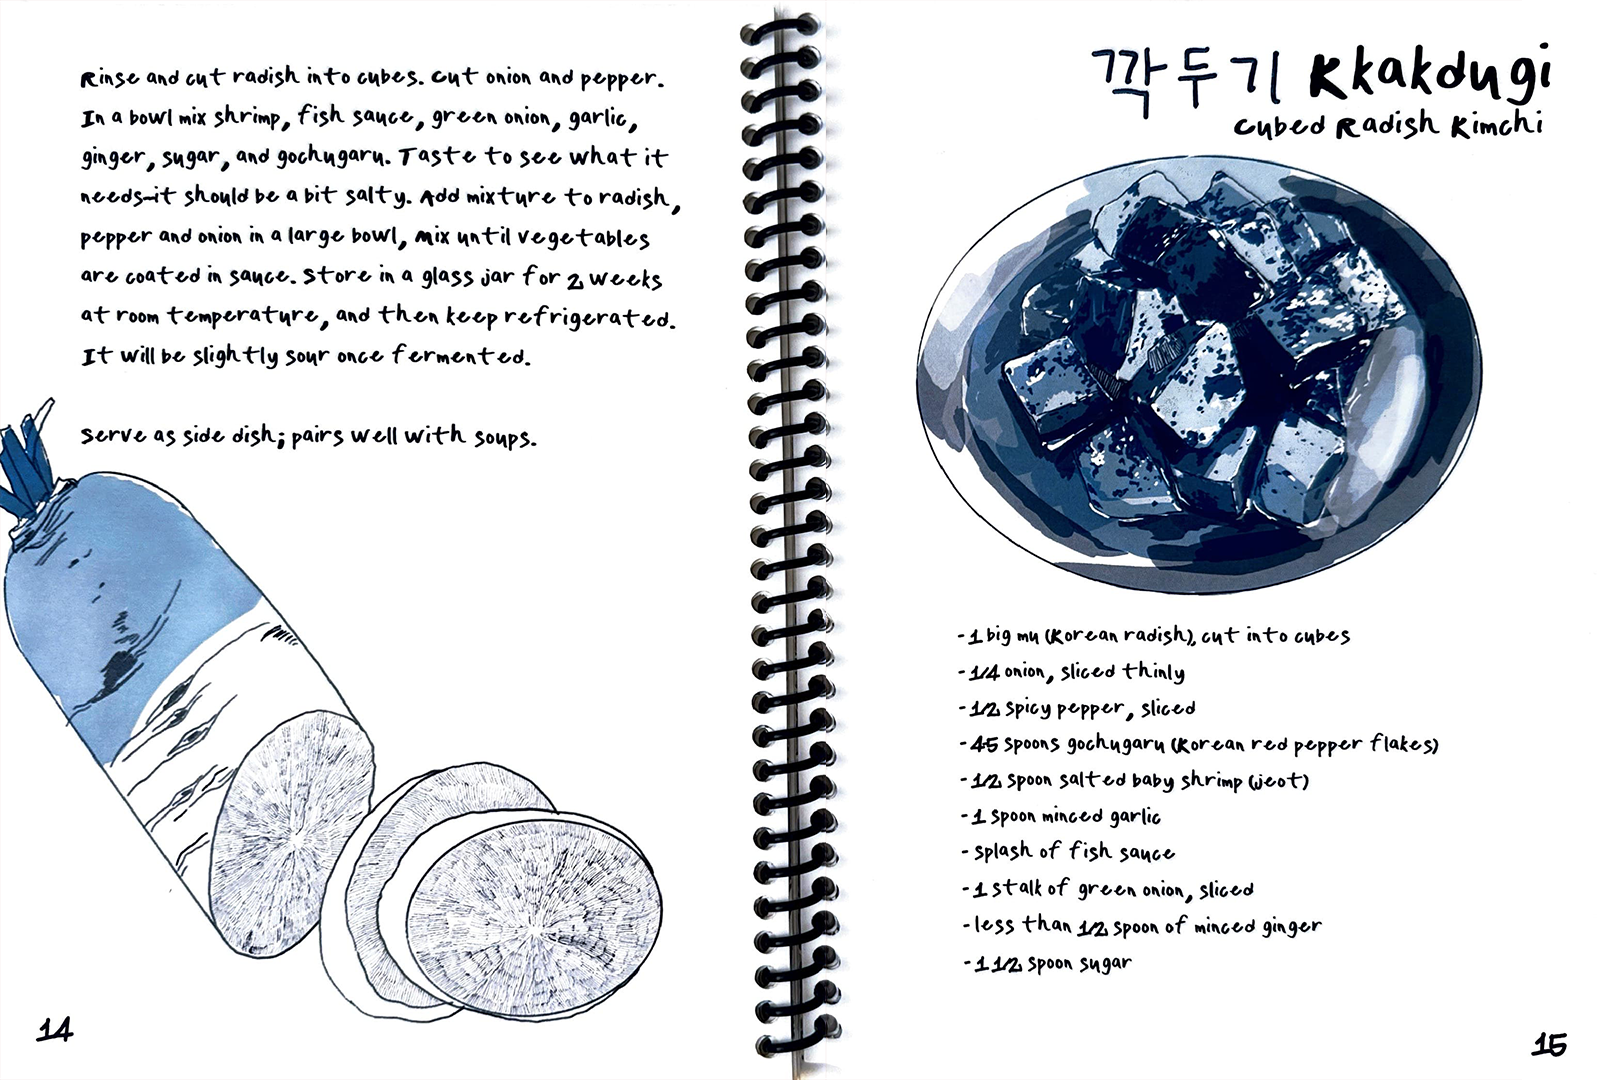 Rinse and cut radish into cubes. Cut onion and pepper.
In a bowl mix shrimp, fish sauce, green onion, garlic,
ginger, sugar, and gochugaru. Taste to see what it
needs—it should be a bit salty. Add mixture to radish,
pepper and onion in a large bowl, mix until vegetables
are coated in sauce. Store in a glass jar for 2 weeks
at room temperature, and then keep refrigerated.
It will be slightly sour once fermented.
Serve as side dish; pairs well with soups.
14
깍두기 Kkakdugi
Cubed Radish Kimchi
-1 big mu (Korean radish), cut into cubes
-1/4 onion, sliced thinly
-1/2 spicy pepper, sliced
-45 spoons gochugaru (Korean red pepper flakes)
-1/2 spoon salted baby shrimp (jeot)
-1 spoon minced garlic
-splash of fish sauce
-1 stalk of green onion, sliced
-less than 1/2 spoon of minced ginger
-1 1/2 spoon sugar
15